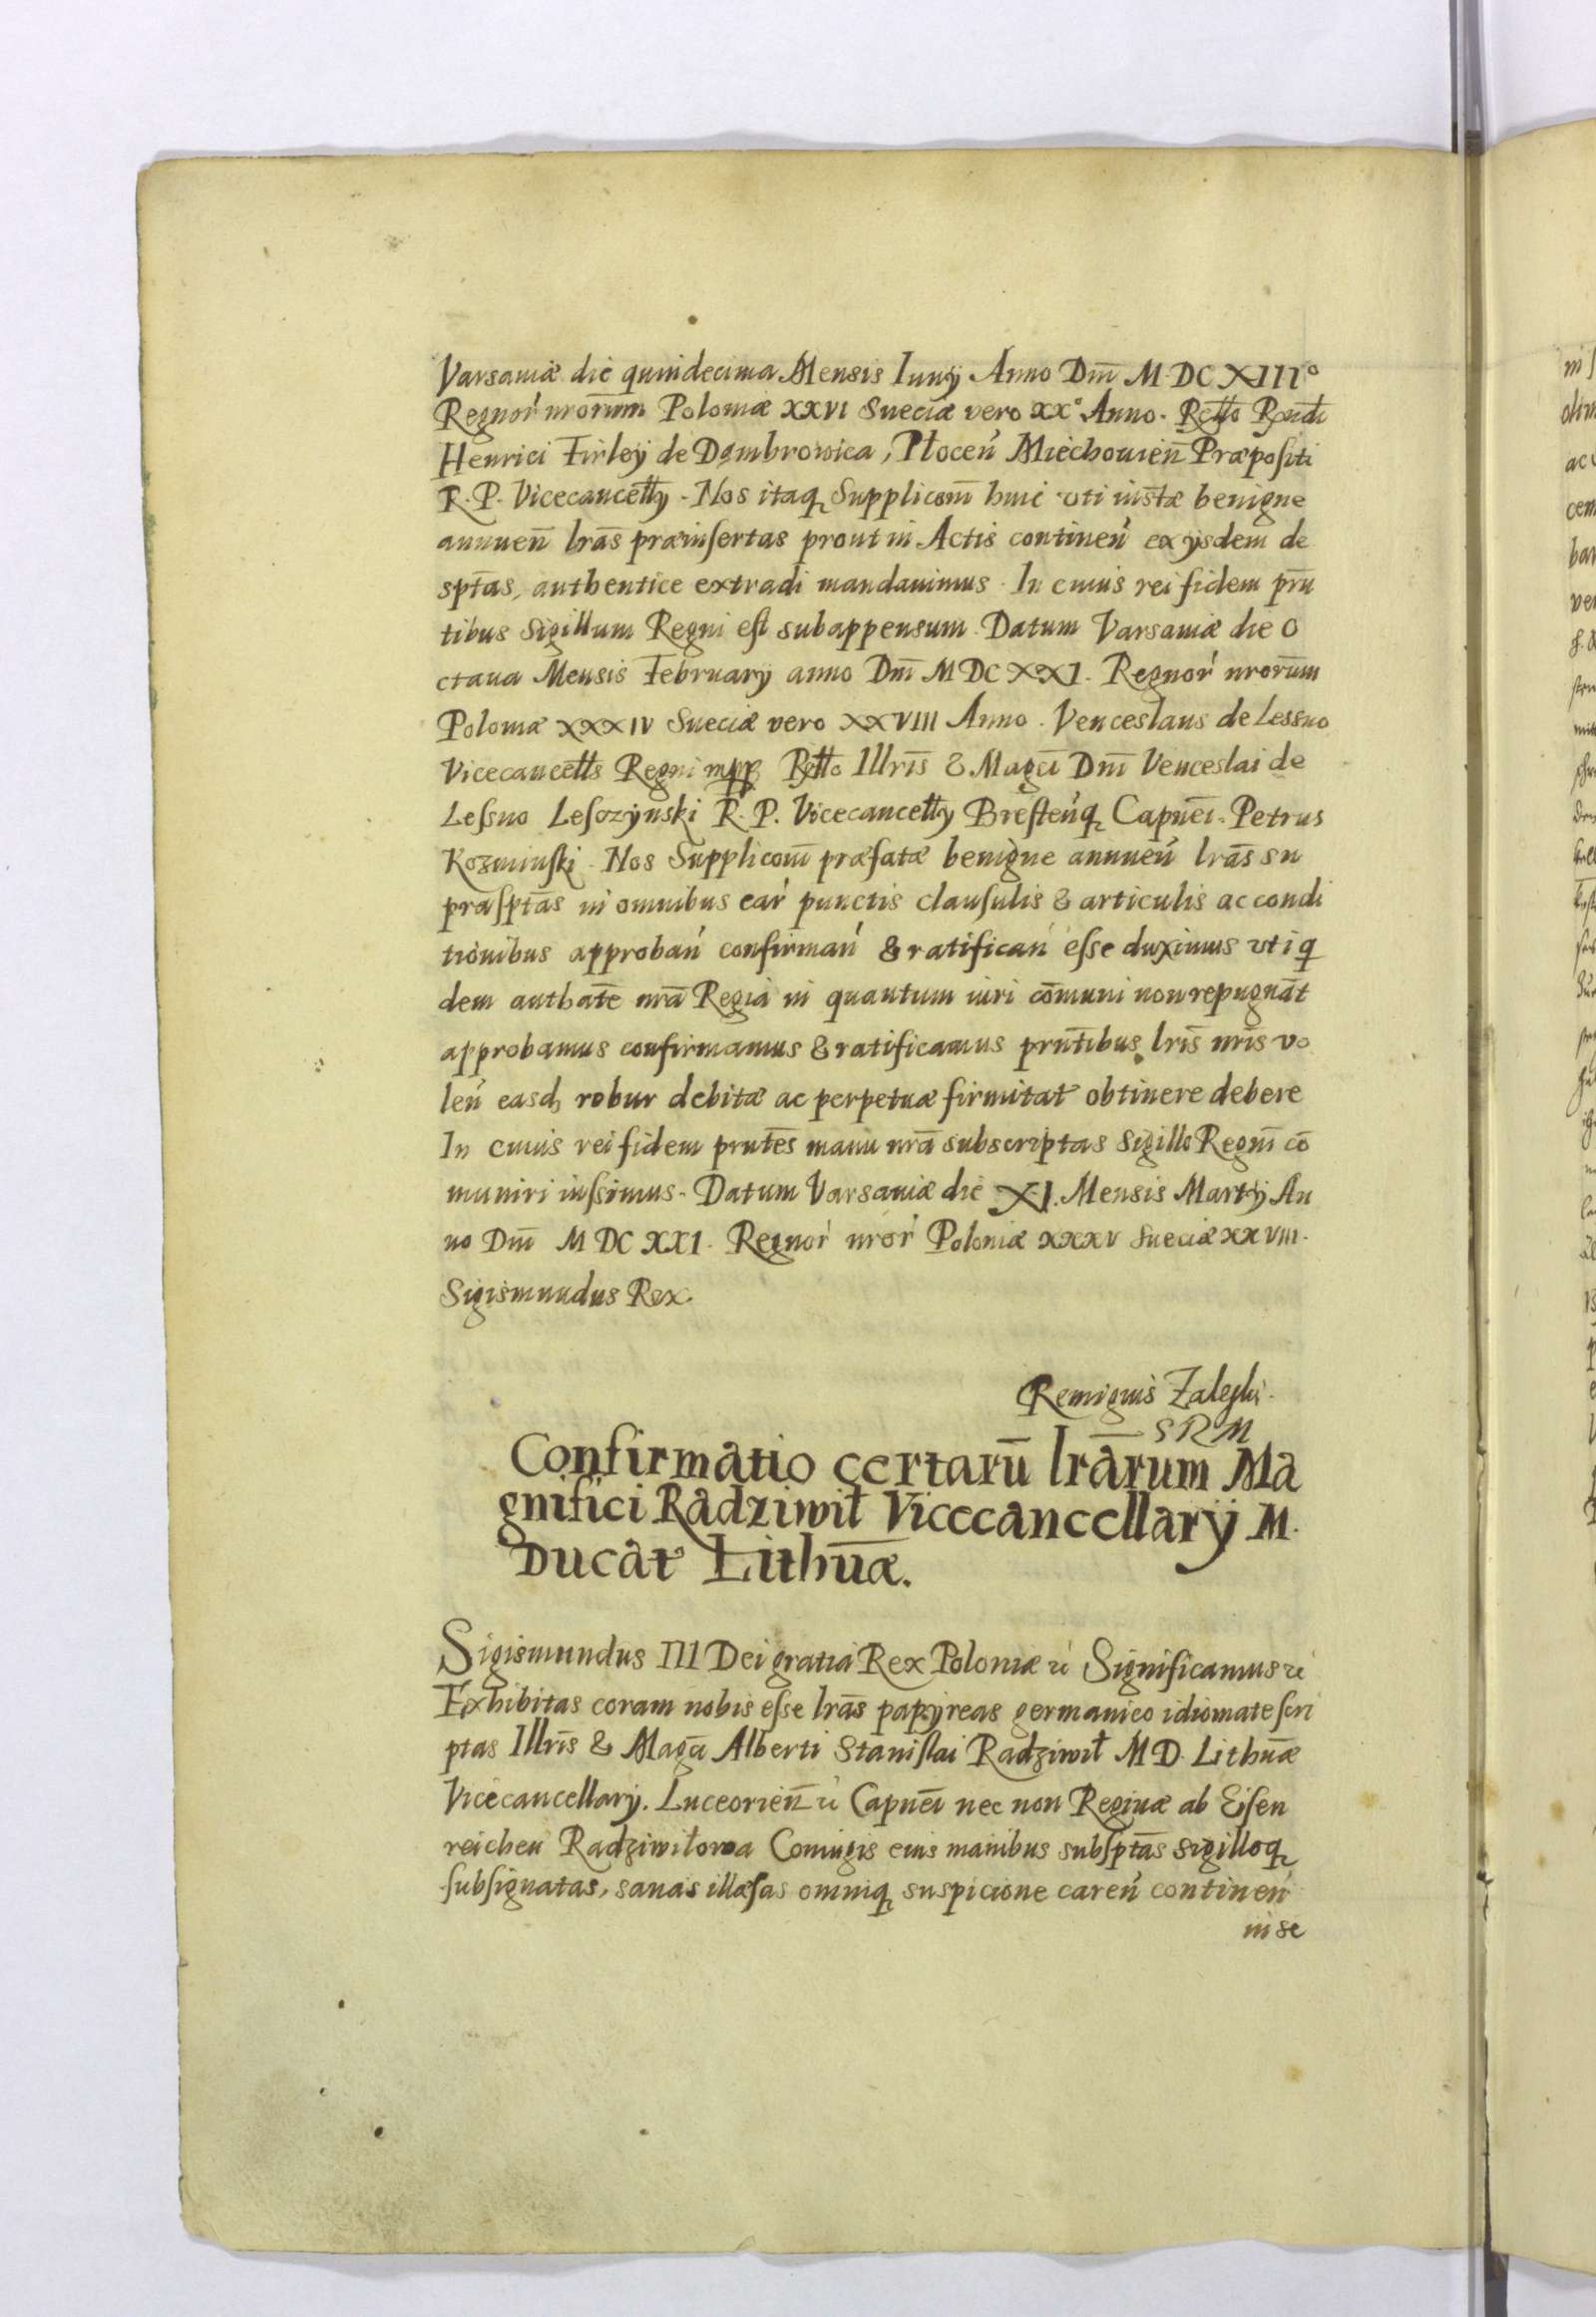 Varsaviæ die quindecima Mensis Iunij Anno Dni̅ M DC XIII°
Regnor̓ nrorum̅ Poloniæ XXVI Sueciæ vero XX° Anno. Rello Reṅdi
Henrici Firley de Dąmbrowica, Płocen̓ Miechovien̅ Præpositi
R. P. Vicecancellij. Nos itaq̨ Suppliconi̅ huic uti iustæ benigne
annuen̅ lra̅s præinsertas prout in Actis continen̓ ex ijsdem de
spta̅s, authentice extradi mandavimus. In cuius rei fidem pr̅n
tibus Sigillum Regni est subappensum. Datum Varsaviæ die O
ctava Mensis Februarij anno Dni̅ M DC XXI. Regnor̓ nrorum̅
Poloniæ XXXIV Sueciæ vero XXVIII Anno. Venceslaus de Lessno
Vicecancells Regni mpp Rello Illris̅ & Magci̅ Dni̅ Venceslai de
Lesno Lesczÿnski R. P. Vicecancellij Bresten̓q̨ Capnei̅. Petrus
Kozminski. Nos Suppliconi̅ præfatæ benigne annuen̓ lra̅s su
praspta̅s in omnibus ear̓ punctis clausulis & articulis ac condi
tionibus approban̓ confirman̓ & ratifican̓ esse duximus uti q
dem authate̅ nra̅ Regia in quantum iuri co̅muni non repugna̅t
approbamus confirmamus & ratificamus prnt̅ibus lris̅ nris̅ vo
len̓ easd, robur debitæ ac perpetuæ firmitat obtinere debere
In cuius rei fidem prnte̅s manu nra̅ subscriptas Sigillo Regni̅ co̅
muniri iussimus. Datum Varsaviæ die XI. Mensis Martij An
no Dni̅ M DC XXI. Regnor̓ nror̓ Poloniæ XXXV Sueciæ XXVIII.
Sigismundus Rex.
Remigius Zaleski.
SRM
Confirmatio certaru̅ lra̅rum Ma
gnifici Radziwił Vicecancellarij M.
Ducat Lithua̅æ.
Sigismundus III Dei gratia Rex Poloniæ ꝛc̓ Significamus ꝛc̓
Exhibitas coram nobis esse lra̅s papÿreas germanico idiomate scri
ptas Illris̅ & Magci̅ Alberti Stanislai Radziwił M D. Lithua̅æ
Vicecancellarij. Luceorien̅ ꝛc̓ Capnei̅ nec non Reginæ ab Eisen
reichen Radziwiłowa Coniugis eius manibus subspta̅s sigilloq̨
subsignatas, sanas illæsas omniq̨ suspicione caren̓ continen̓
in se